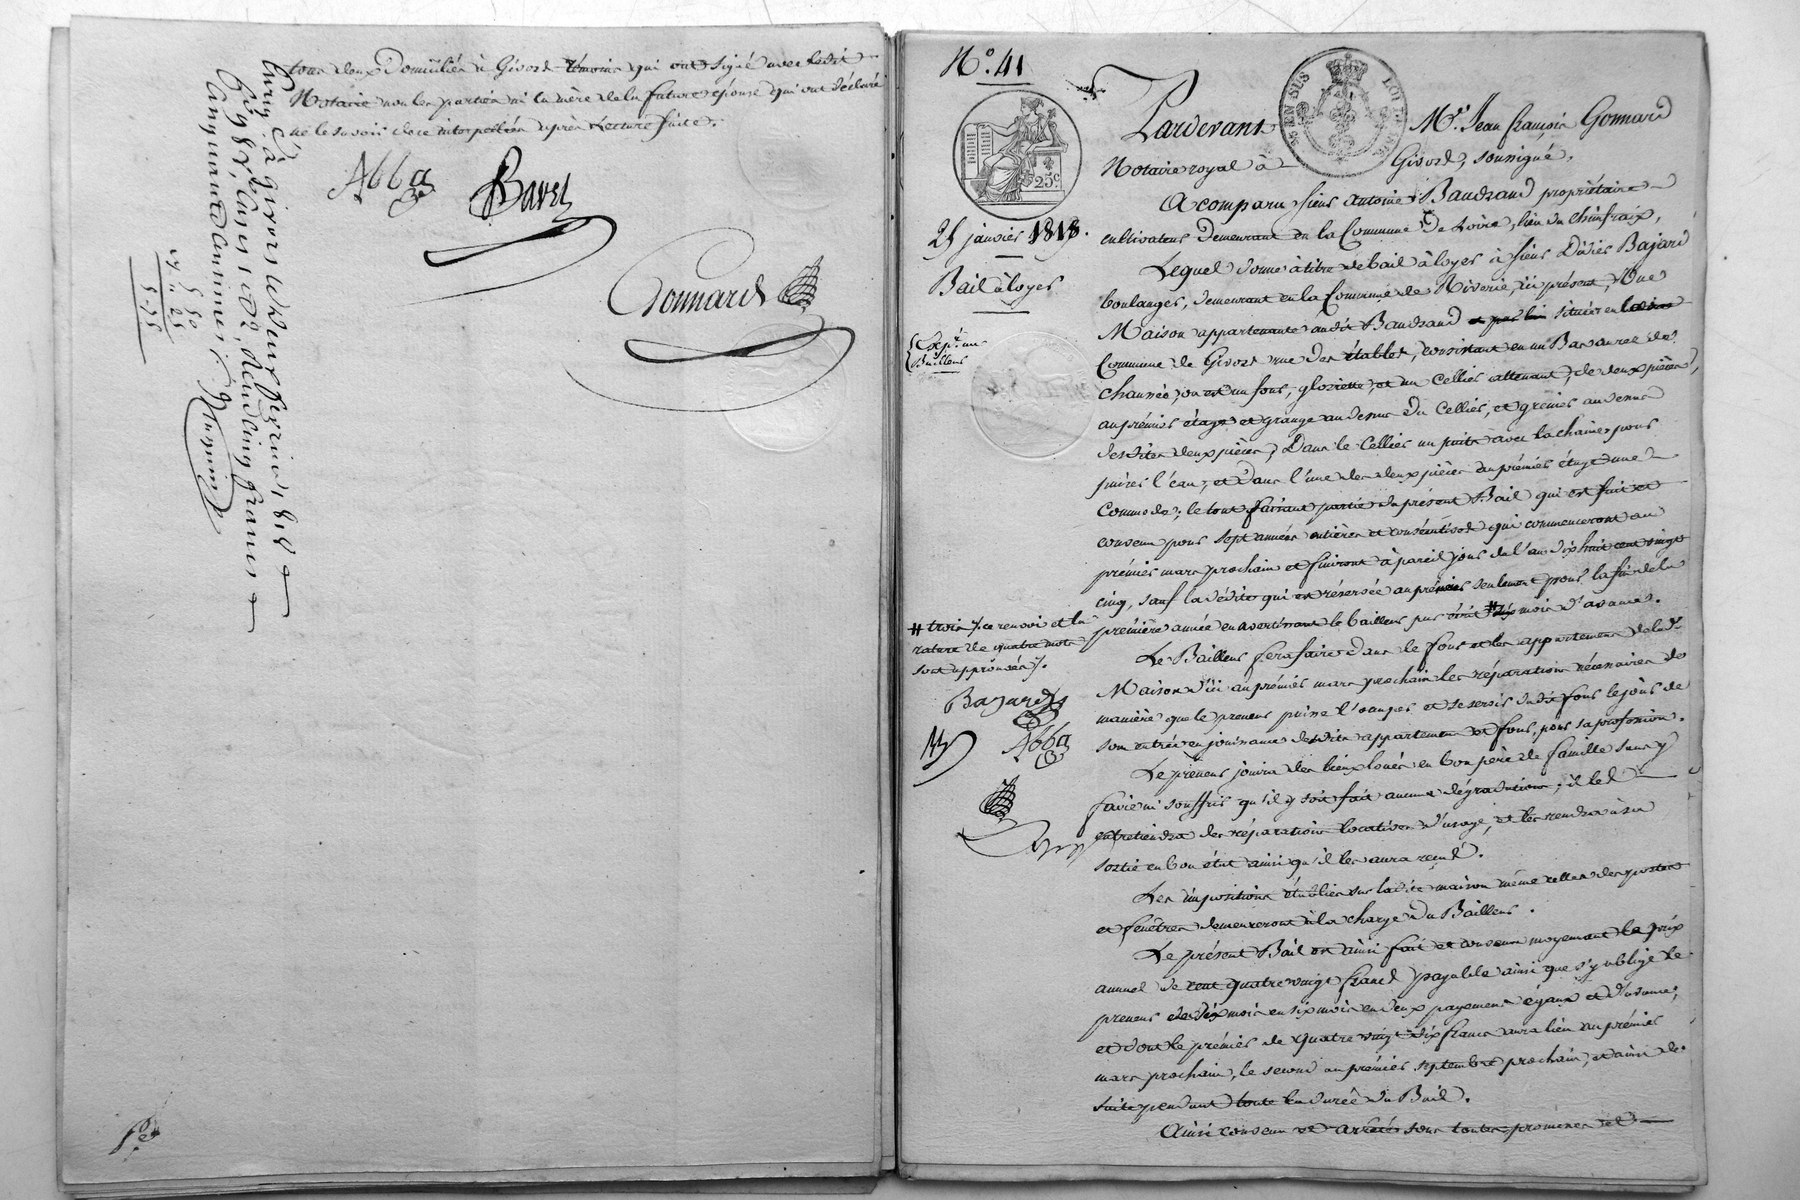 tous deux Domiciliés à Givors témoins qui ont signé avec ledit
Notaire non les parties ni la mère de la future épouse qui ont déclaré
ne le savoir de ce interpellés après Lecture faite.
Abba
Bavet
Gonnard
Enreg. à Givors le
vingt francs
5 50
55
N.º 41
Pardevant Mr. Jean françois Gonnard
Notaire royal à Givors, soussigné,
25c
A comparu sieur antoine Baudrand propriétaire
25 janvier 1818.
cultivateur demeurant en la Commune de Loire, lieu du Chinfraix,
Bail à loyer
Lequel donne à titre de bail à loyer à sieur Didier Bajard
boulanger, demeurant en la Commune de Riverie, ici présent, Une
Maison appartenante audit Baudrand située en la
Commune de Givors rue des étables, consistant en un Bas au rez de
Bailleur
chaussée, où est un four, gloriette, et un Cellier attenant, de deux pièces,
au prémier étage et grange au dessus du Cellier, et grenier au dessus
desdites deux pièces, Dans le Cellier un puits avec la chaine pour
puiser l'eau, et dans l'une des deux pièces au prémier étage une
Commode; le tout faisant partie du présent Bail qui est fait et
convenu pour sept années entières et consécutives qui commenceront au
prémier mars prochain et finiront à pareil jour de l'an dix huit cent vingt
cinq, sauf la dédite qui est réservée au preneur seulement pour la fin de la
première année en avertissant le bailleur par écrit # six mois d'avance.
# trois /. ce renvoi et la
rature de quatre mots
sont approuvés /.
Le Bailleur fera faire dans le four et les appartemens de lad.
Maison d'ici au prémier mars prochain les réparations nécessaires de
manière que le preneur puisse l'occuper et se servir dudit four le jour de
son entrée en jouissance desdits appartemens et four, pour sa profession.
Bajard
Abba
Le preneur jouira des lieux loués en bon père de famille sans y
faire ni souffrir qu'il y soit fait aucune dégradation; il les
entretiendra des réparations locatives d'usage, et les rendra à sa
sortie en bon état ainsi qu'il les aura reçus.
Les impositions établies sur ladite maison même celles des portes
et fenêtres demeureront à la charge du Bailleur.
Le présent Bail est ainsi fait et convenu moyenant le prix
annuel de cent quatre vingt francs payable ainsi que s'y oblige le
preneur de six mois en six mois en deux payemens égaux et d'avance,
et dont le prémier de quatre vingt dix francs aura lieu au prémier
mars prochain, le second au prémier septembre prochain, et ainsi de
suite pendant toute la durée du Bail.
Ainsi convenu et arrêté sous toutes promesses et